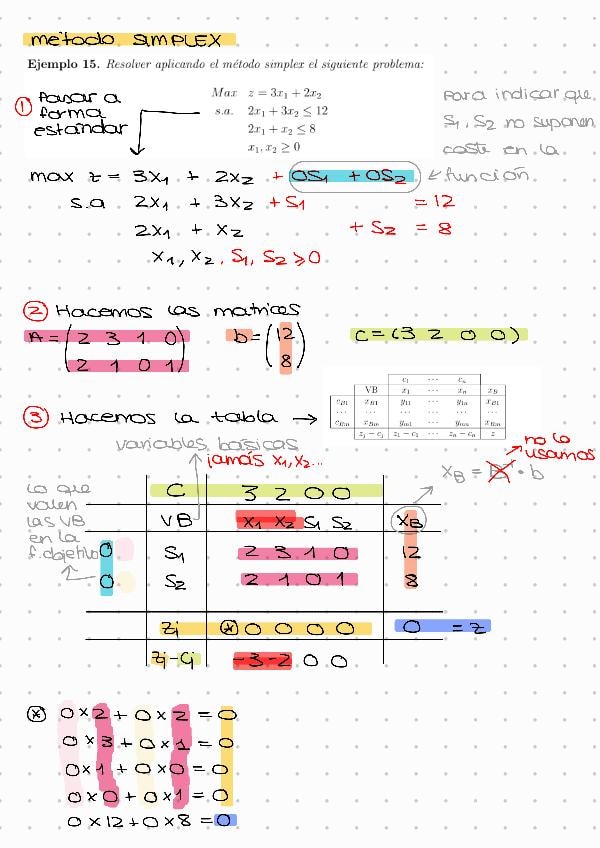 método SIMPLEX
Ejemplo 15. Resolver aplicando el método simplex el siguiente problema:
① Pasar a forma estandar
Max z = 3x₁ + 2x₂
s.a. 2x₁ + 3x₂ ≤ 12
2x₁ + x₂ ≤ 8
x₁, x₂ ≥ 0
Para indicar que
S₁, S₂ no suponen
coste en la
función.
max z = 3x₁ + 2x₂ + 0S₁ + 0S₂
s.a 2x₁ + 3x₂ + S₁ = 12
2x₁ + x₂ + S₂ = 8
x₁, x₂, S₁, S₂ ≥ 0
② Hacemos las matrices
A = (2 3 1 0
2 1 0 1)
b = (12
8)
C = (3 2 0 0)
③ Hacemos la tabla →
c₁ ⋯ cₙ
VB x₁ ⋯ xₙ x_B
c_B1 x_B1 y₁₁ ⋯ y₁ₙ x_B1
⋯ ⋯ ⋯ ⋯ ⋯
c_Bm x_Bm y_m1 ⋯ y_mn x_Bm
z_j − c_j z₁ − c₁ ⋯ zₙ − cₙ z
variables básicas
¡jamás x₁, x₂...
no lo
usamos
x_B = · b
Lo que
valen
las VB
en la
f. objetivo
C 3 2 0 0
VB x₁ x₂ S₁ S₂ x_B
0 S₁ 2 3 1 0 12
0 S₂ 2 1 0 1 8
Zj ⊛ 0 0 0 0 0 = z
Zj-Cj -3 -2 0 0
⊛ 0 x 2 + 0 x 2 = 0
0 x 3 + 0 x 1 = 0
0 x 1 + 0 x 0 = 0
0 x 0 + 0 x 1 = 0
0 x 12 + 0 x 8 = 0